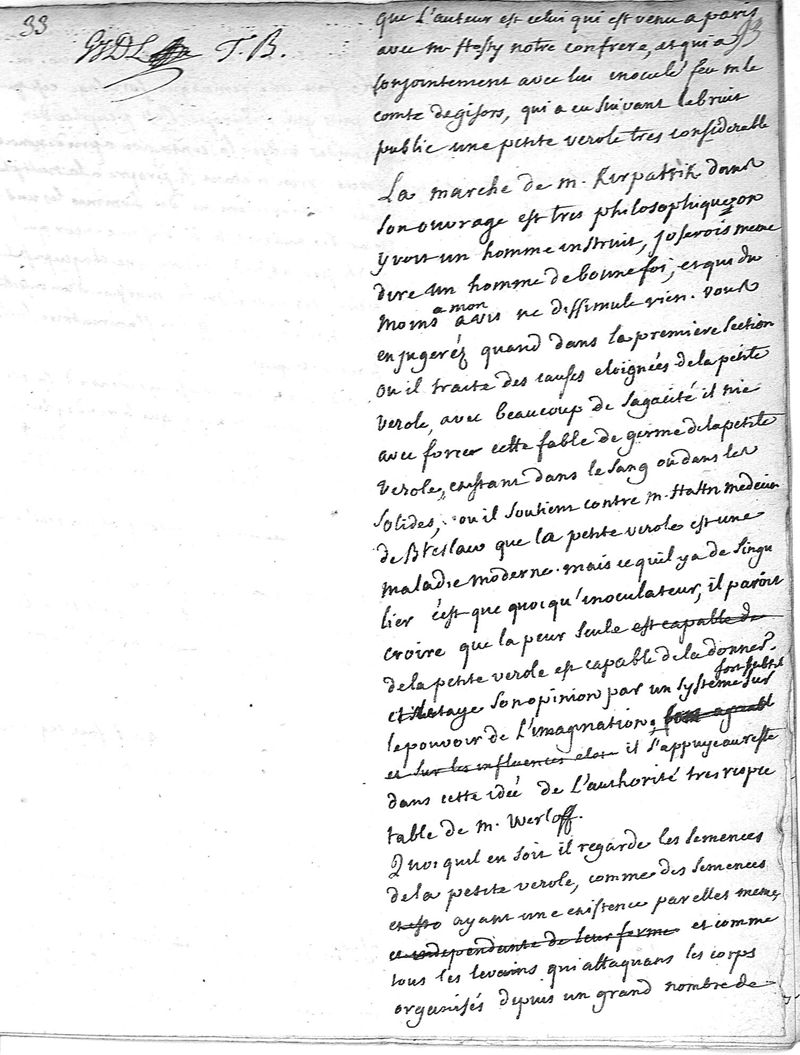 33
T. B.
33
que L'auteur est celui qui est venu a paris
avec mr Hosty notre confrere, et qui a
conjointement avec lui inoculé feu mr le
comte de gisors, qui a eu suivant le bruit
public une petite verole tres considerable
La marche de m. Kirpatrik dans
son ouvrage est tres philosophique, on
y voit un homme instruit, j'oserois meme
dire un homme de bonne foi, et qui du
moins a mon avis ne dissimule rien. vous
en jugeréz quand dans la premiere section
ou il traite des causes eloignées de la petite
verole, avec beaucoup de sagacité il nie
avec force cette fable de germe de la petite
verole, existant dans le sang ou dans les
solides, ou il soutient contre m. Hahn medecin
de Breslaw que la petite verole est une
maladie moderne. mais ce quil y a de singu
lier c'est que quoiqu'inoculateur, il paroit
croire que la peur seule est capable de
de la petite verole est capable de la donner.
et etaye son opinion par un systeme fort subtil sur
le pouvoir de L'imagination, fort agreabl
et sur les influences il s'appuye au reste
dans cette ideé de L'authorité tres respec
table de m. Werloff.
Quoi quil en soit il regarde les semences
de la petite verole, comme des semences
ayant une existence par elles memes,
et independante de leur forme et comme
tous les levains qui attaquans les corps
organisés depuis un grand nombre de